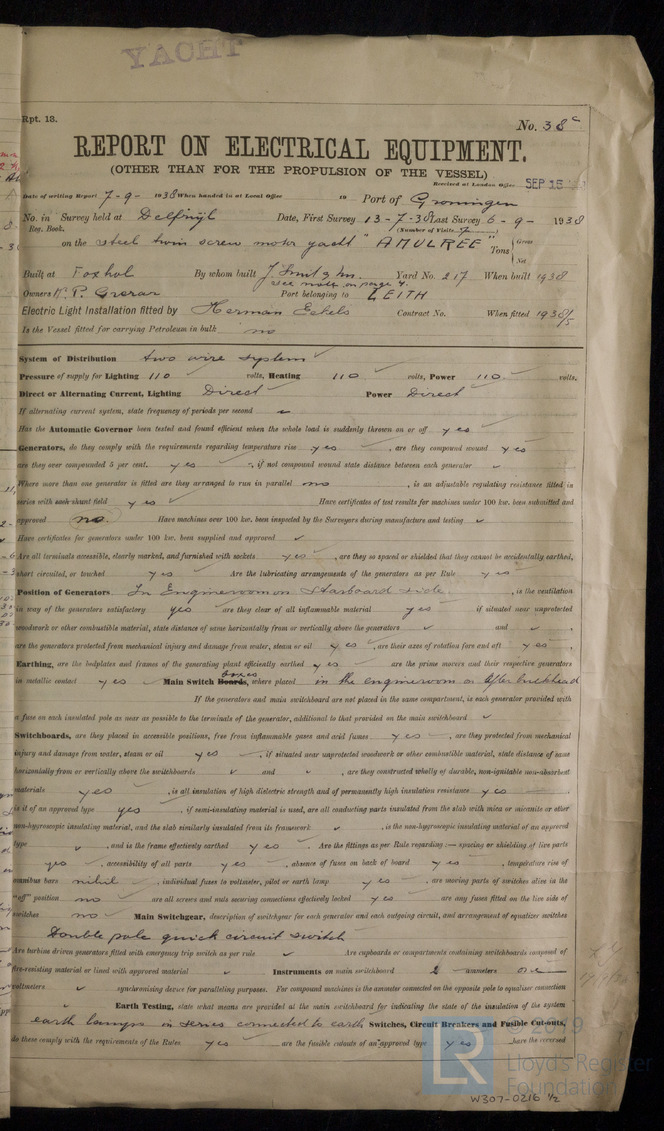 YACHT
Rpt. 13.
No. 38c
REPORT ON ELECTRICAL EQUIPMENT.
(OTHER THAN FOR THE PROPULSION OF THE VESSEL)
Received at London Office SEP 15
Date of writing Report 7-9-1938 When handed in at Local Office 19 Port of Groningen
No. in Survey held at Delfzijl Date, First Survey 13-7-38 Last Survey 6-9-1938
Reg. Book. (Number of Visits 7)
on the steel twin screw motor yacht "AMULREE" Tons { Gross
Net
Built at Foxhol By whom built J. Smit & Zn. Yard No. 217 When built 1938
see notes on page 4.
Owners Port belonging to LEITH
Electric Light Installation fitted by Herman Contract No. When fitted 1938/5
Is the Vessel fitted for carrying Petroleum in bulk no
System of Distribution two wire system
Pressure of supply for Lighting 110 volts, Heating 110 volts, Power 110 volts.
Direct or Alternating Current, Lighting Direct Power Direct
If alternating current system, state frequency of periods per second
Has the Automatic Governor been tested and found efficient when the whole load is suddenly thrown on or off yes
Generators, do they comply with the requirements regarding temperature rise yes , are they compound wound yes
are they over compounded 5 per cent. yes , if not compound wound state distance between each generator
Where more than one generator is fitted are they arranged to run in parallel no , is an adjustable regulating resistance fitted in
series with each shunt field yes Have certificates of test results for machines under 100 kw. been submitted and
approved no. Have machines over 100 kw. been inspected by the Surveyors during manufacture and testing
Have certificates for generators under 100 kw. been supplied and approved
Are all terminals accessible, clearly marked, and furnished with sockets yes , are they so spaced or shielded that they cannot be accidentally earthed,
short circuited, or touched yes Are the lubricating arrangements of the generators as per Rule yes
Position of Generators In Engineroom Starboard side , is the ventilation
in way of the generators satisfactory yes are they clear of all inflammable material yes if situated near unprotected
woodwork or other combustible material, state distance of same horizontally from or vertically above the generators and ,
are the generators protected from mechanical injury and damage from water, steam or oil yes , are their axes of rotation fore and aft yes .
Earthing, are the bedplates and frames of the generating plant efficiently earthed yes are the prime movers and their respective generators
in metallic contact yes Main Switch Boards, boxes where placed in the engineroom on after bulkhead
If the generators and main switchboard are not placed in the same compartment, is each generator provided with
a fuse on each insulated pole as near as possible to the terminals of the generator, additional to that provided on the main switchboard
Switchboards, are they placed in accessible positions, free from inflammable gases and acid fumes yes , are they protected from mechanical
injury and damage from water, steam or oil yes , if situated near unprotected woodwork or other combustible material, state distance of same
horizontally from or vertically above the switchboards and , are they constructed wholly of durable, non-ignitable non-absorbent
materials yes , is all insulation of high dielectric strength and of permanently high insulation resistance yes
is it of an approved type yes , if semi-insulating material is used, are all conducting parts insulated from the slab with mica or micanite or other
non-hygroscopic insulating material, and the slab similarly insulated from its framework , is the non-hygroscopic insulating material of an approved
type , and is the frame effectively earthed yes Are the fittings as per Rule regarding :— spacing or shielding of live parts
yes , accessibility of all parts yes , absence of fuses on back of board yes , temperature rise of
omnibus bars nihil , individual fuses to voltmeter, pilot or earth lamp yes , are moving parts of switches alive in the
"off" position no are all screws and nuts securing connections effectively locked yes are any fuses fitted on the live side of
switches no Main Switchgear, description of switchgear for each generator and each outgoing circuit, and arrangement of equaliser switches
Double pole quick circuit switch
Are turbine driven generators fitted with emergency trip switch as per rule Are cupboards or compartments containing switchboards composed of
fire-resisting material or lined with approved material Instruments on main switchboard 2 ammeters
voltmeters synchronising device for paralleling purposes. For compound machines is the ammeter connected on the opposite pole to equaliser connection
Earth Testing, state what means are provided at the main switchboard for indicating the state of the insulation of the system
earth lamps in series connected to earth Switches, Circuit Breakers and Fusible Cut-outs,
do these comply with the requirements of the Rules yes are the fusible cutouts of an approved type yes have the reversed
© 2019
LR
Lloyd's Register
Foundation
W307-0216 1/2